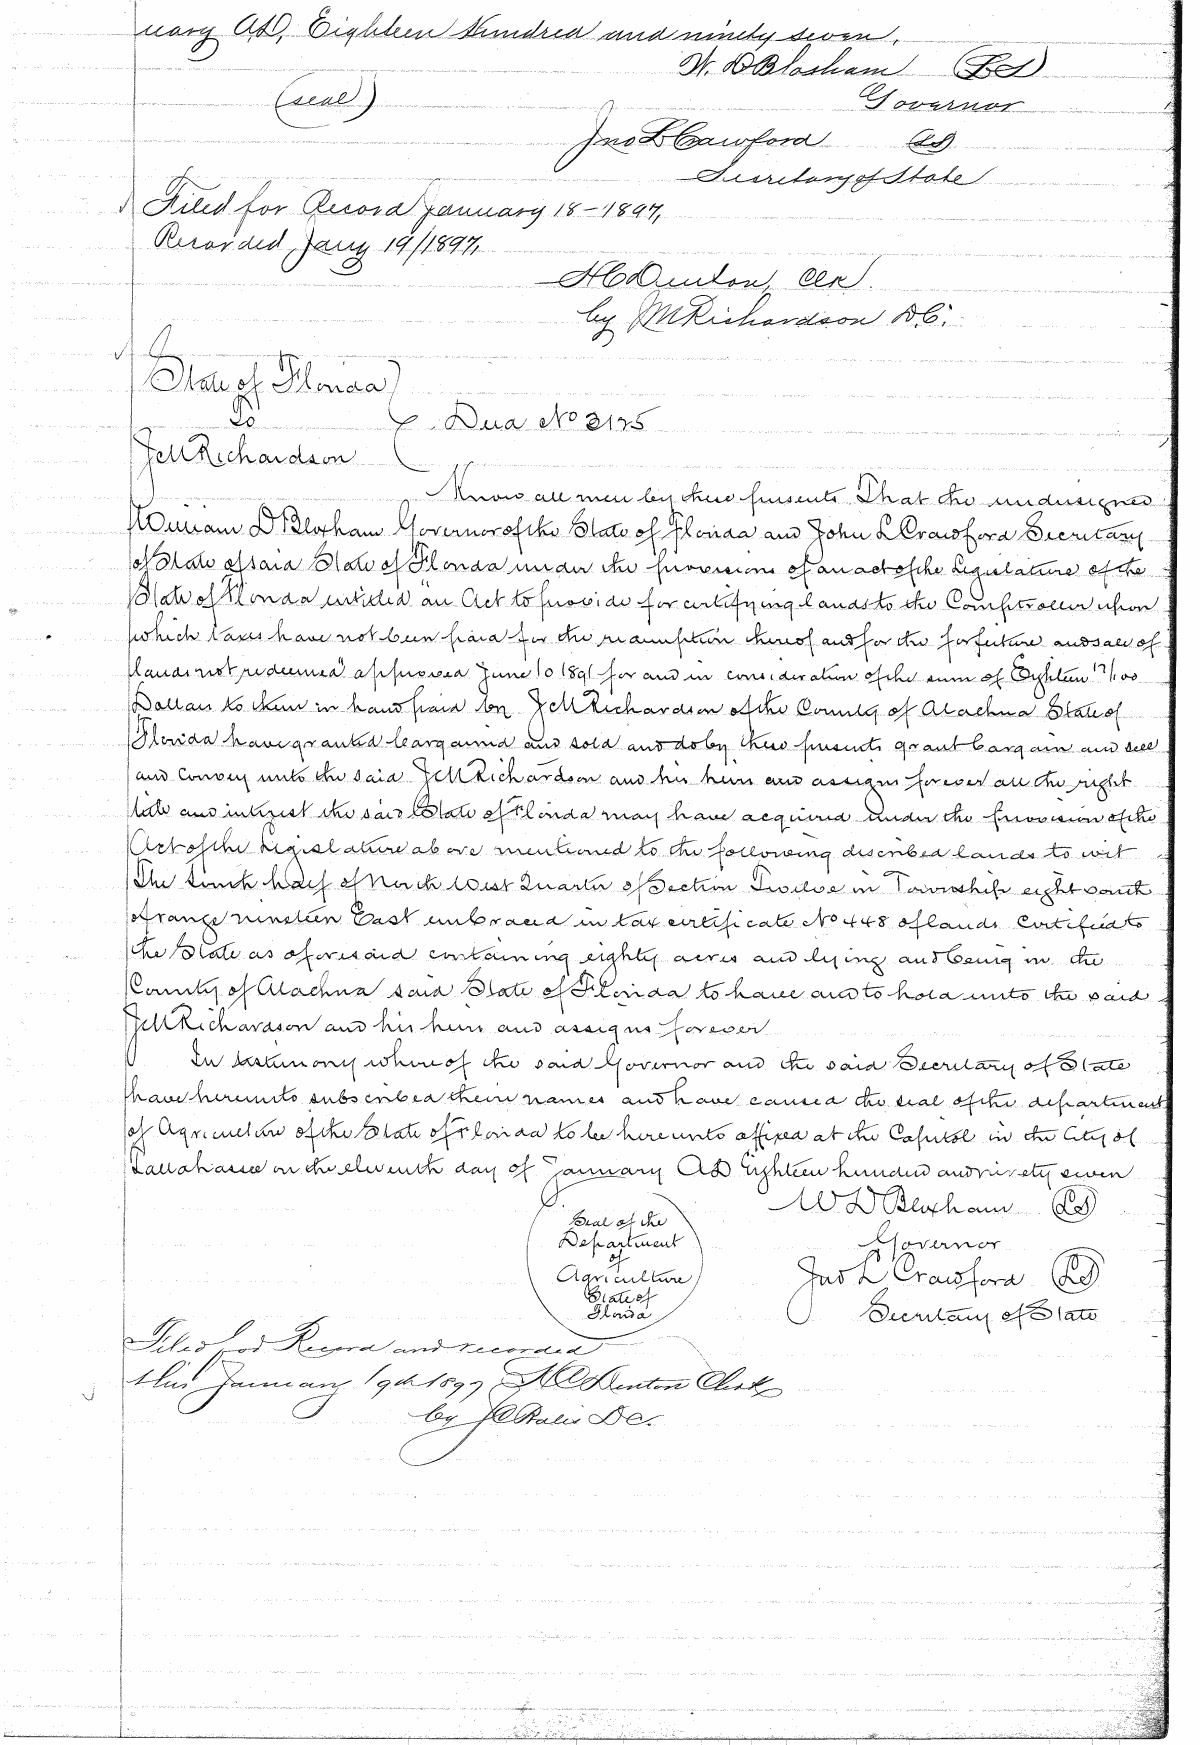 uary AD, Eighteen Hundred and ninety seven,
W. D Bloxham (LS)
(seal) Governor
Jno L Crawford (LS)
Secretary of State
Filed for Record January 18-1897,
Recorded Jany 19/1897,
H C Denton, Clk.
by M Richardson D.C.
State of Florida
To Deed No
Richardson
Know all men by these presents That the undersigned
William D Bloxham Governor of the State of Florida and John L Crawford Secretary
of State of said State of Florida under the provisions of an act of the Legislature of the
State of Florida entitled "an Act to provide for certifying lands to the Comptroller upon
which taxes have not been paid for the redemption thereof and for the forfeiture and sale of
lands not redeemed" approved June 10 1891 for and in consideration of the sum of Eighteen 17/100
Dollars to them in hand paid by Richardson of the County of Alachua State of
Florida have granted bargained and sold and do by these presents grant bargain and sell
and Convey unto the said Richardson and his heirs and assigns forever all the right
title and interest the said State of Florida may have acquired under the provision of the
Act of the Legislature above mentioned to the following discribed lands to wit
The South half of North West Quarter of Section Twelve in Township eight south
of range nineteen East embraced in tax certificate No 448 of lands Certified to
the State as aforesaid containing eighty acres and lying and being in the
County of Alachua said State of Florida to have and to hold unto the said
Richardson and his heirs and assigns forever
In testimony where of the said Governor and the said Secretary of State
have hereunto subscribed their names and have caused the seal of the department
of Agriculture of the State of Florida to be here unto affixed at the Capitol in the City of
Tallahassee on the eleventh day of January AD Eighteen hundred and ninety seven
W D Bloxham (LS)
Seal of the
Department
of
Agriculture
State of
Florida
Governor
Jno L Crawford (LS)
Secretary of State
Filed for Record and recorded
this January 19th 1897 H C Denton Clerk
by D C.